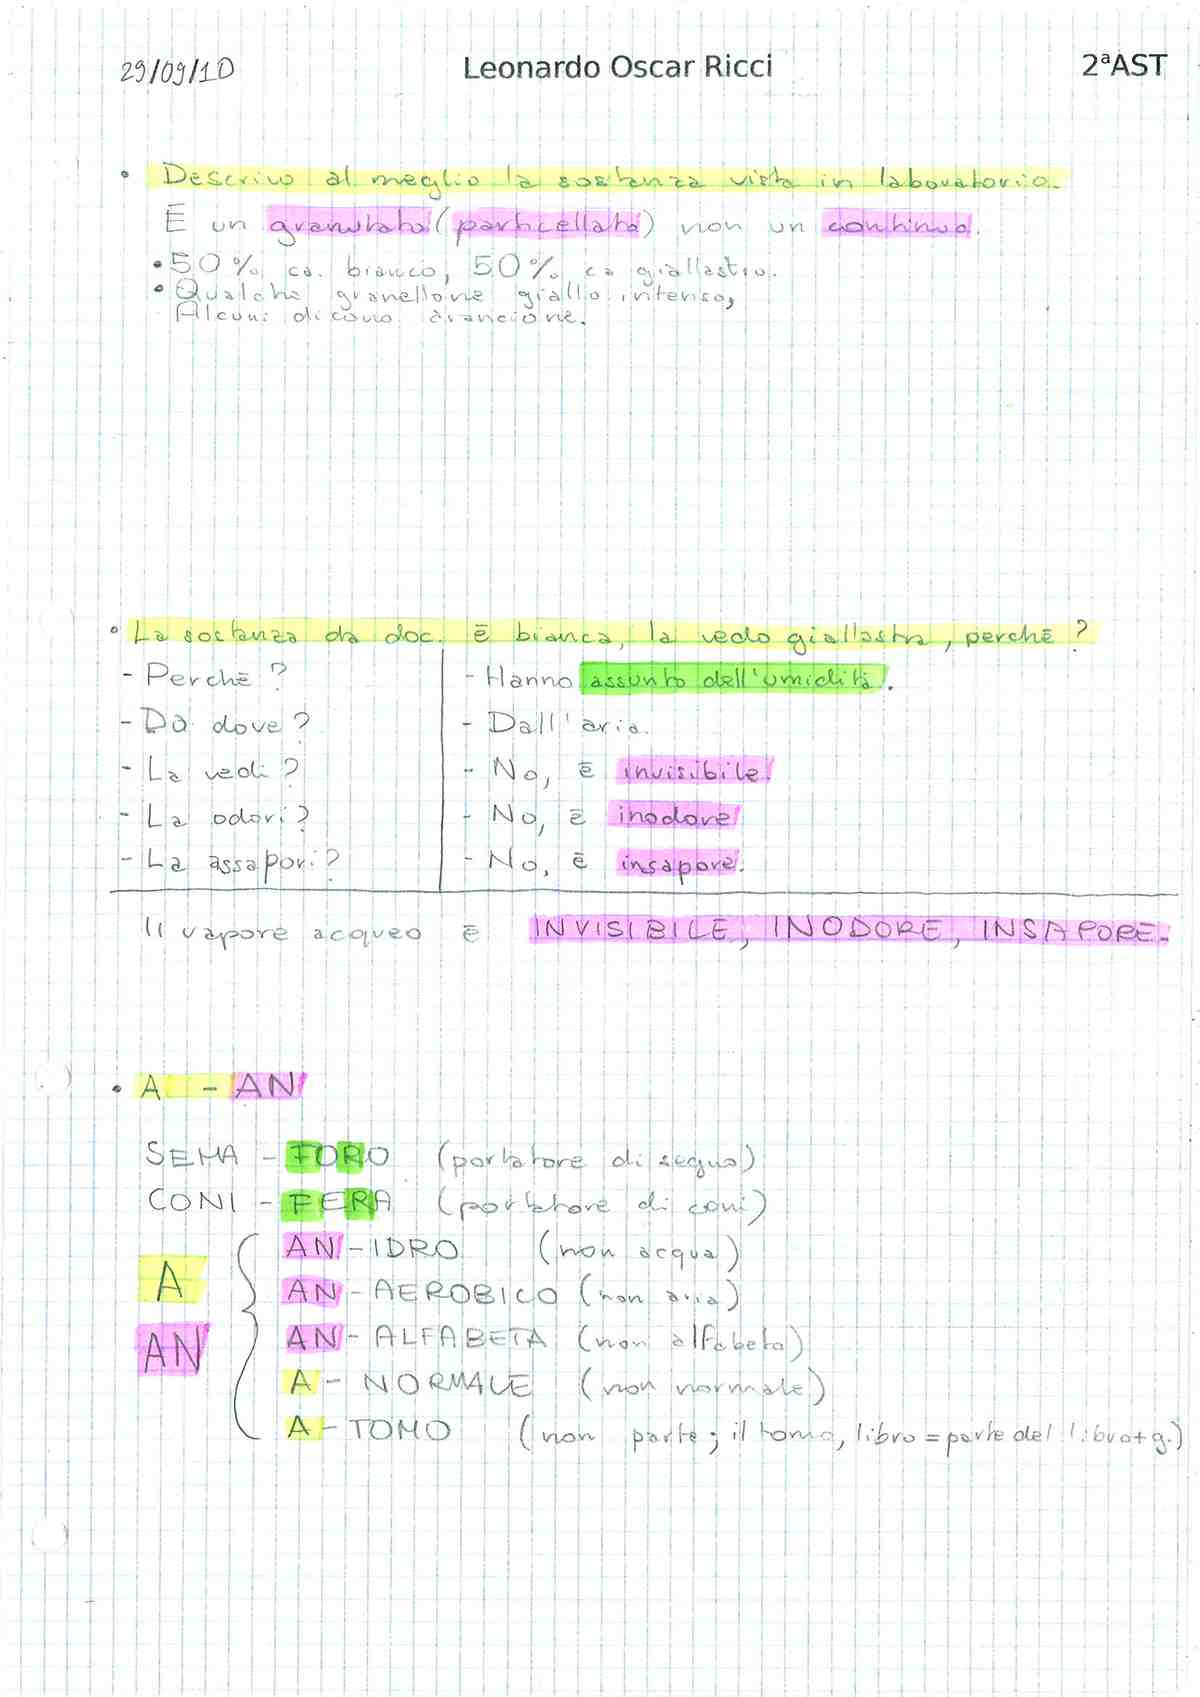 29/09/10 Leonardo Oscar Ricci 2ªAST
• Descrivo al meglio la sostanza vista in laboratorio.
È un granulato (particellato) non un continuo.
• 50% ca. bianco, 50% ca giallastro.
• Qualche granellone giallo intenso,
Alcuni dicono arancione.
• La sostanza da doc. è bianca, la vedo giallastra, perchè?
- Perchè? - Hanno assunto dell'umidità.
- Da dove? - Dall'aria.
- La vedi? - No, è invisibile.
- La odori? - No, è inodore
- La assapori? - No, è insapore.
Il vapore acqueo è INVISIBILE, INODORE, INSAPORE.
• A - AN
SEMA - FORO (portatore di segno)
CONI - FERA (portatore di coni)
AN - IDRO (non acqua)
A AN - AEROBICO (non aria)
AN AN - ALFABETA (non alfabeta)
A - NORMALE (non normale)
A - TOMO (non parte; il tomo, libro = parte del libro + g.)